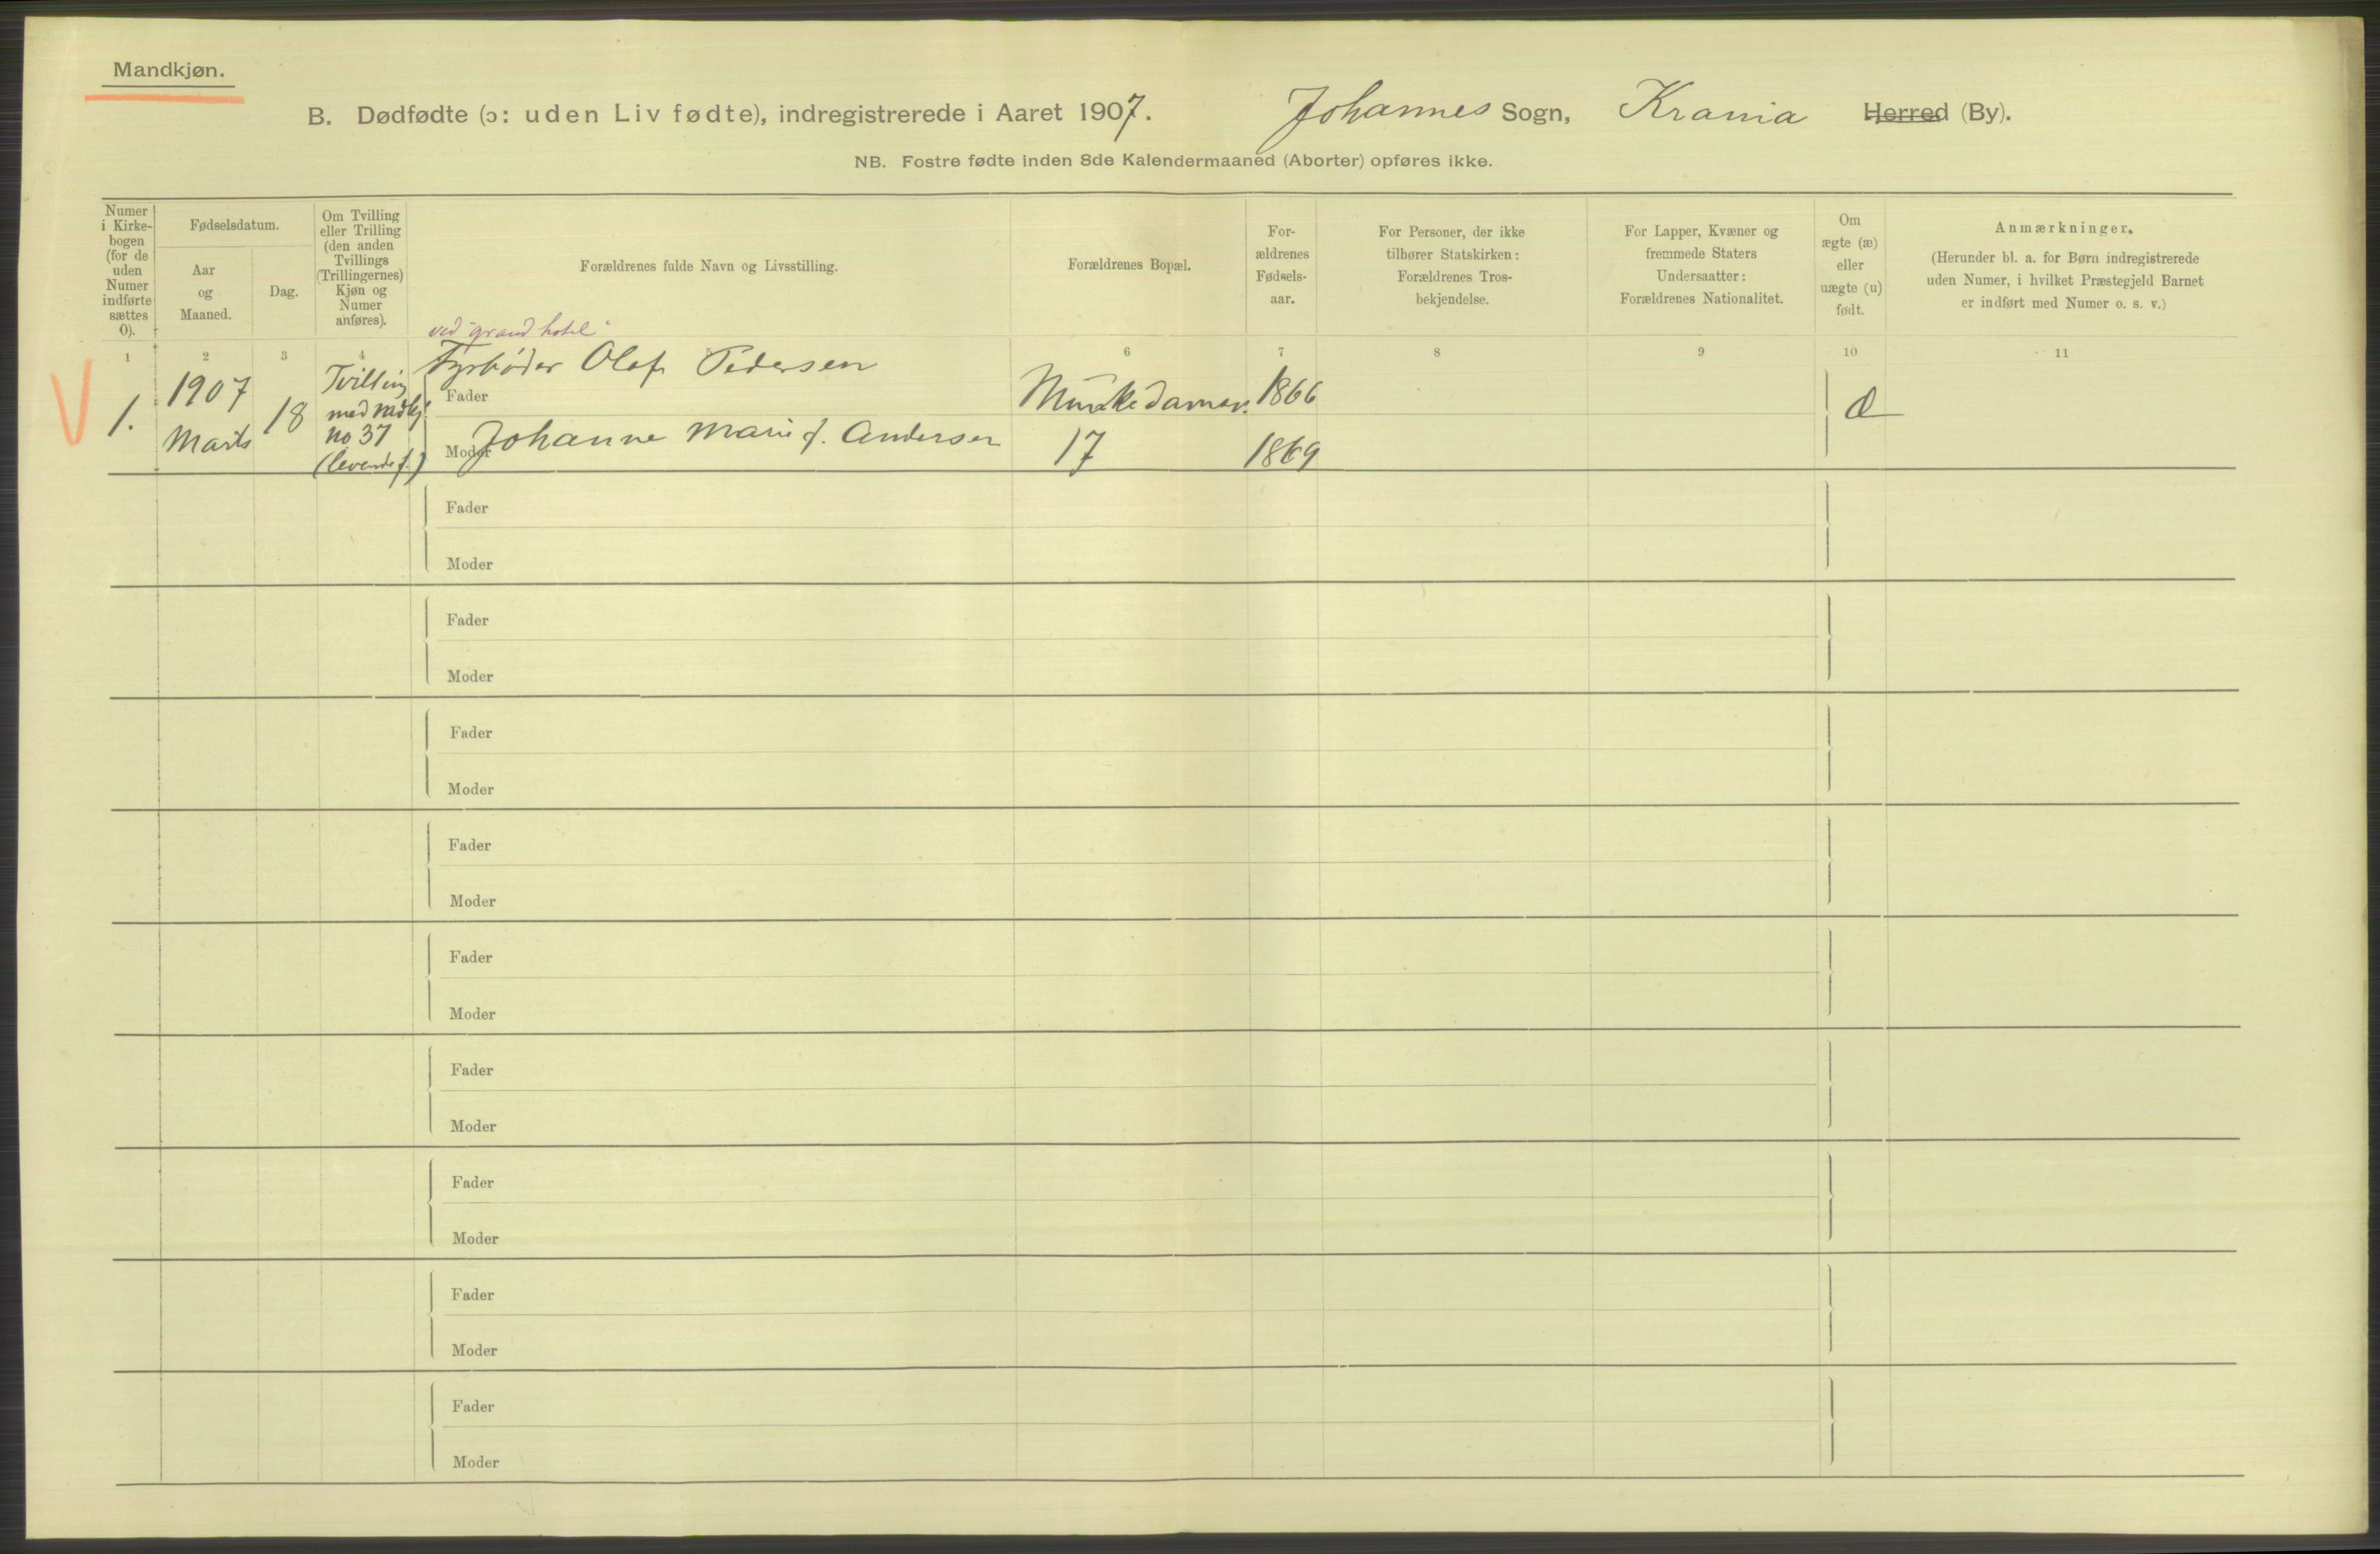 Mandkjøn.
B. Dødfødte (ɔ: uden Liv fødte), indregistrerede i Aaret 1907. Johannes Sogn, Krania Herred (By).
NB. Fostre fødte inden 8de Kalendermaaned (Aborter) opføres ikke.
Numer
i Kirke-
bogen
(for de
uden
Numer
indførte
sættes
0).
Fødselsdatum.
Aar
og
Maaned.
Dag.
Om Tvilling
eller Trilling
(den anden
Tvillings
(Trillingernes)
Kjøn og
Numer
anføres).
Forældrenes fulde Navn og Livsstilling.
Forældrenes Bopæl.
For-
ældrenes
Fødsels-
aar.
For Personer, der ikke
tilhører Statskirken:
Forældrenes Tros-
bekjendelse.
For Lapper, Kvæner og
fremmede Staters
Undersaatter:
Forældrenes Nationalitet.
Om
ægte (æ)
eller
uægte (u)
født.
Anmærkninger.
(Herunder bl. a. for Børn indregistrerede
uden Numer, i hvilket Præstegjeld Barnet
er indført med Numer o. s. v.)
1 2 3 4 5 6 7 8 9 10 11
V
1.
1907
Marts
18
Tvilling
med
no 37
(levende f.)
ved "grand hotel"
Fyrbøder Olaf Pedersen
Fader
Moder Johanne Marie f. Andersen
Munkedamsv.
17
1866
1869
æ
Fader
Moder
Fader
Moder
Fader
Moder
Fader
Moder
Fader
Moder
Fader
Moder
Fader
Moder
Fader
Moder
Fader
Moder